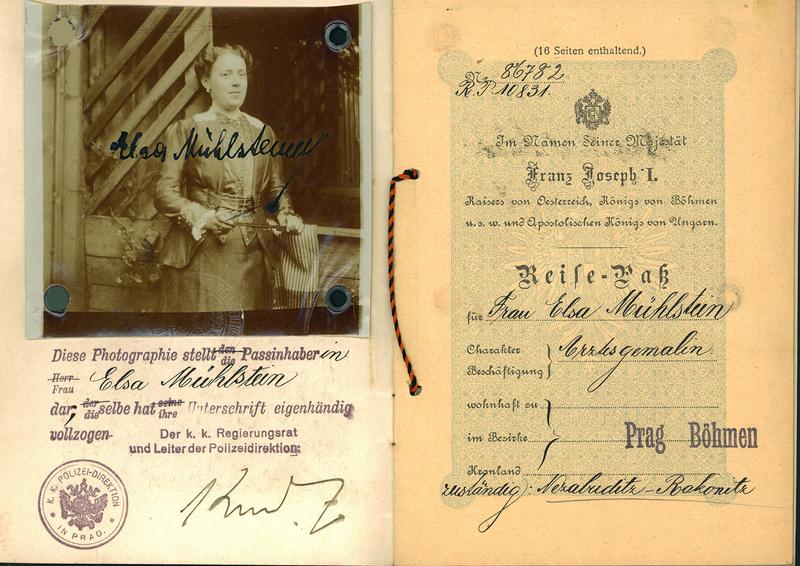 Elsa Mühlstein
Diese Photographie stellt den die Passinhaberin
Herr
Frau Elsa Mühlstein
dar, der die selbe hat seine ihre Unterschrift eigenhändig
vollzogen
Der k. k. Regierungsrat
und Leiter der Polizeidirektion:
K. K. POLIZEI-DIREKTION IN PRAG.
(16 Seiten enthaltend.)
Nr. 86782
R. P. 10831.
Im Namen Seiner Majestät
Franz Joseph I.
Kaisers von Oesterreich, Königs von Böhmen
u. s. w. und Apostolischen Königs von Ungarn.
Reise-Paß
für Frau Elsa Mühlstein
Charakter
Beschäftigung } Arztesgemalin.
wohnhaft zu
im Bezirke Prag Böhmen
Kronland
zuständig: Nezabuditz-Rakonitz